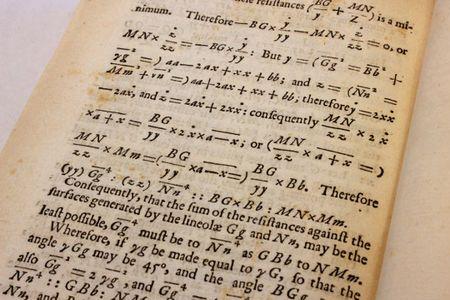 these resistances (BG/yy + MN/z) is a mi-
nimum. Therefore — BG × ẏ/yy — MN × ż/zz = 0, or
MN × ż/zz = — BG × ẏ/yy : But y = (Gg² = Bb² +
γg² =) aa — 2ax + xx + bb; and z = (Nn² =
Mm² + νn² =) aa + 2ax + xx + bb; therefore ẏ = 2xẋ
— 2aẋ, and ż = 2aẋ + 2xẋ : consequently MN/zz × 2ẋ
× a + x = BG/yy × 2ẋ × a — x; or (MN/zz × a + x =)
MN/zz × Mm = (BG/yy × a — x =) BG/yy × Bb. Therefore
(yy) Gg⁴ : (zz) Nn⁴ :: BG × Bb : MN × Mm.
Consequently, that the sum of the resistances against the
surfaces generated by the lineolæ Gg and Nn, may be the
least possible, Gg⁴ must be to Nn⁴ as GBb to NMm.
Wherefore, if γg be made equal to γG, so that the
angle γGg may be 45°, and the angle BGg
also Gg² = 2γg, and Gg
Nn⁴ :: GBb : NM
Nn, and